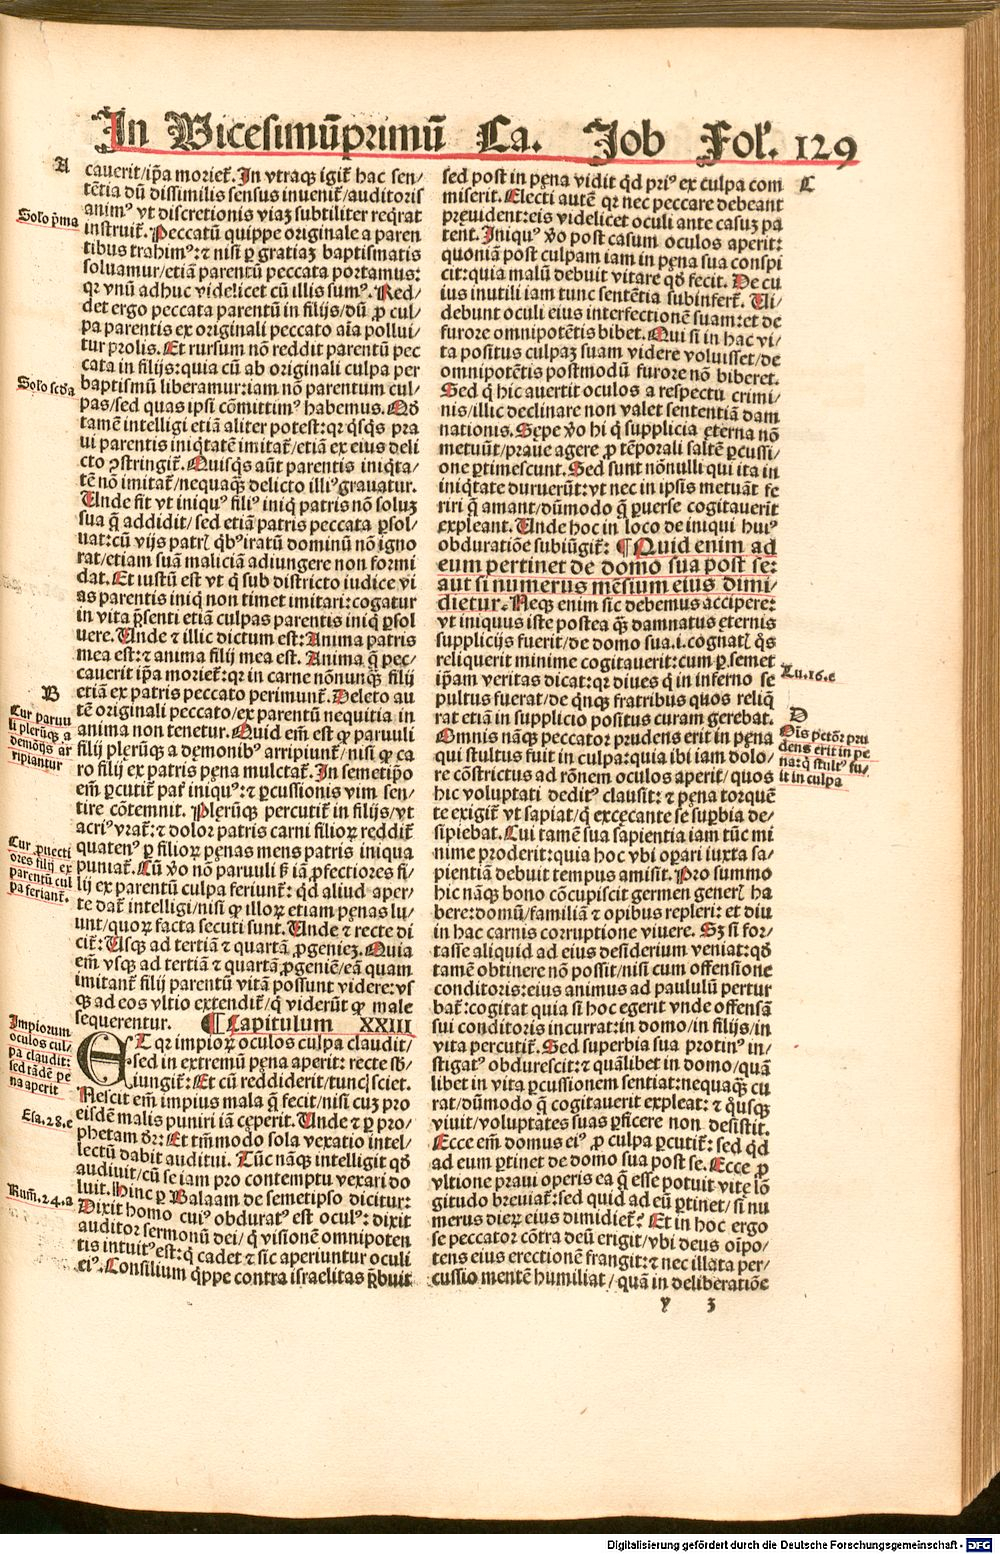 In Vicesimũprimũ Ca. Job Fol'. 129
A
cauerit/ip̃a morieť. In vtraq̃ igiť hac sen/
tẽtia dũ dissimilis sensus inueniť/auditoris
animꝰ vt discretionis viaꝫ subtiliter reqͥrat
instruiť. Peccatũ quippe originale a paren
tibus trahimꝰ: ⁊ nisi ꝑ gratiaꝫ baptismatis
soluamur/etiã parentũ peccata portamus:
qꝛ vnũ adhuc videlicet cũ illis sumꝰ. Red/
det ergo peccata parentũ in filijs/dũ ꝓ cul/
pa parentis ex originali peccato aĩa pollui/
tur prolis. Et rursum nõ reddit parentũ pec
cata in filijs: quia cũ ab originali culpa per
baptismũ liberamur: iam nõ parentum cul/
pas/sed quas ipsi cõmittimꝰ habemus. Qd̓
tamẽ intelligi etiã aliter potest: qꝛ qͥsqͥs pra
ui parentis iniqͥtatẽ imitať/etiã ex eius deli
cto ꝯstringiť. Quisqͥs aũt parentis iniqͥta/
tẽ nõ imitať/nequaq̃ delicto illiꝰ grauatur.
Unde fit vt iniquꝰ filiꝰ iniq̇ patris nõ soluꝫ
sua q̃ addidit/sed etiã patris peccata ꝑsol/
uat: cũ vijs patrꝭ qͥbꝰ iratũ dominũ nõ igno
rat/etiam suã maliciã adiungere non formi
dat. Et iustũ est vt q̇ sub districto iudice vi
as parentis iniq̇ non timet imitari: cogatur
in vita p̃senti etiã culpas parentis iniq̇ ꝑsol
uere. Unde ⁊ illic dictum est: Anima patris
mea est: ⁊ anima filij mea est. Anima q̃ pec/
cauerit ip̃a morieť: qꝛ in carne nõnunq̃ filij
etiã ex patris peccato perimunť. Deleto au
tẽ originali peccato/ex parentũ nequitia in
anima non tenetur. Quid em̃ est ꝙ paruuli
filij plerũq̃ a dęmonibꝰ arripiunť/nisi ꝙ ca
ro filij ex patris pęna mulctať. In semetip̃o
em̃ ꝑcutiť pať iniquꝰ: ⁊ ꝑcussionis vim sen/
tire cõtemnit. Plerũq̃ percutiť in filijs/vt
acriꝰ vrať: ⁊ dolor patris carni filioꝝ reddiť
quatenꝰ ꝑ filioꝝ pęnas mens patris iniqua
puniať. Cũ v̓o nõ paruuli ß iã ꝓfectiores fi/
lij ex parentũ culpa feriunť: qd̓ aliud aper/
te dať intelligi/nisi ꝙ illoꝝ etiam pęnas lu/
unt/quoꝝ facta secuti sunt. Unde ⁊ recte di
ciť: Usq̃ ad tertiã ⁊ quartã ꝓgenieꝫ. Quia
em̃ vsq̃ ad tertiã ⁊ quartã ꝓgeniẽ/eã quam
imitanť filij parentũ vitã possunt videre: vs
q̃ ad eos vltio extendiť/q̇ viderũt ꝙ male
sequerentur. ¶Capitulum XXIII
ET qꝛ impioꝝ oculos culpa claudit/
sed in extremũ pęna aperit: recte sb̓/
iungiť: Et cũ reddiderit/tunc sciet.
Nescit em̃ impius mala q̃ fecit/nisi cuꝫ pro
eisdẽ malis puniri iã cęperit. Unde ⁊ ꝑ pro/
phetam dr̃: Et tm̃modo sola vexatio intel/
lectũ dabit auditui. Tũc nãq̃ intelligit qd̓
audiuit/cũ se iam pro contemptu vexari do
luit. Hinc ꝑ Balaam de semetipso dicitur:
Dixit homo cuiꝰ obduratꝰ est oculꝰ: dixit
auditor sermonũ dei/q̇ visionẽ omnipoten
tis intuitꝰ est: q̇ cadet ⁊ sic aperiuntur oculi
eiꝰ. Consilium q̇ppe contra israelitas p̃buit
Solo p̃ma
Solo scd̓a
B
Cur paruu
li plerũq̃ a
demõijs ar
ripiantur
Cur ꝓuecti
ores filij ex
parentũ cul
pa feriant̃.
Impiorum
oculos cul/
pa claudit:
sed tãdẽ pe
na aperit
Esa. 28. e
Num̃. 24. a
sed post in pęna vidit qd̓ priꝰ ex culpa com
miserit. Electi autẽ qꝛ nec peccare debeant
pręuident: eis videlicet oculi ante casuꝫ pa
tent. Iniquꝰ v̓o post casum oculos aperit:
quoniã post culpam iam in pęna sua conspi
cit: quia malũ debuit vitare qd̓ fecit. De cu
ius inutili iam tunc sentẽtia subinferť. Ui/
debunt oculi eius interfectionẽ suam: et de
furore omnipotẽtis bibet. Qui si in hac vi/
ta positus culpaꝫ suam videre voluisset/de
omnipotẽtis postmodũ furore nõ biberet.
Sed q̇ hic auertit oculos a respectu crimi/
nis/illic declinare non valet sententiã dam
nationis. Sępe v̓o hi q̇ supplicia ęterna nõ
metuũt/praue agere ꝓ tẽporali saltẽ ꝑcussi/
one ꝑtimescunt. Sed sunt nõnulli qui ita in
iniqͥtate duruerũt: vt nec in ipsis metuãt fe
riri q̃ amant/dũmodo q̃ ꝑuerse cogitauerit
expleant. Unde hoc in loco de iniqui huiꝰ
obduratiõe subiũgiť: ¶Quid enim ad
eum pertinet de domo sua post se:
aut si numerus mẽsium eius dimi/
dietur. Neq̃ enim sic debemus accipere:
vt iniquus iste postea q̃ damnatus ęternis
supplicijs fuerit/de domo sua .i. cognatꝭ qͥs
reliquerit minime cogitauerit: cum ꝑ semet
ip̃am veritas dicat: qꝛ diues q̇ in inferno se
pultus fuerat/de qͥnq̃ fratribus quos reliq̇
rat etiã in supplicio positus curam gerebat.
Omnis nãq̃ peccator prudens erit in pęna
qui stultus fuit in culpa: quia ibi iam dolo/
re cõstrictus ad rõnem oculos aperit/quos
hic voluptati deditꝰ clausit: ⁊ pęna torquẽ
te exigiť vt sapiat/q̇ excęcante se suꝑbia de/
sipiebat. Cui tamẽ sua sapientia iam tũc mi
nime proderit: quia hoc vbi oꝑari iuxta sa/
pientiã debuit tempus amisit. Pro summo
hic nãq̃ bono cõcupiscit germen generꝭ ha
bere: domũ/familiã ⁊ opibus repleri: et diu
in hac carnis corruptione viuere. Sꝫ si for/
tasse aliquid ad eius desiderium veniat: qd̓
tamẽ obtinere nõ possit/nisi cum offensione
conditoris: eius animus ad paululũ pertur
bať: cogitat quia si hoc egerit vnde offensã
sui conditoris incurrat: in domo/in filijs/in
vita percutiť. Sed superbia sua protinꝰ in/
stigatꝰ obdurescit: ⁊ quãlibet in domo/quã
libet in vita ꝑcussionem sentiat: nequaq̃ cu
rat/dũmodo q̃ cogitauerit expleat: ⁊ qͥusq̃
viuit/voluptates suas ꝑficere non desistit.
Ecce em̃ domus eiꝰ ꝓ culpa ꝑcutiť: sed qd̓
ad eum ꝑtinet de domo sua post se. Ecce ꝓ
vltione praui operis ea q̃ esse potuit vitę lõ
gitudo breuiať: sed quid ad eũ ꝑtinet/si nu
merus dieꝝ eius dimidieť? Et in hoc ergo
se peccator cõtra deũ erigit/vbi deus oĩpo/
tens eius erectionẽ frangit: ⁊ nec illata per/
cussio mentẽ humiliat/quã in deliberatiõe
C
Lu. 16. e
D
Ois pctõr pru
dens erit in pe
na: q̇ stultꝰ fu/
it in culpa
y 3
Digitalisierung gefördert durch die Deutsche Forschungsgemeinschaft - DFG